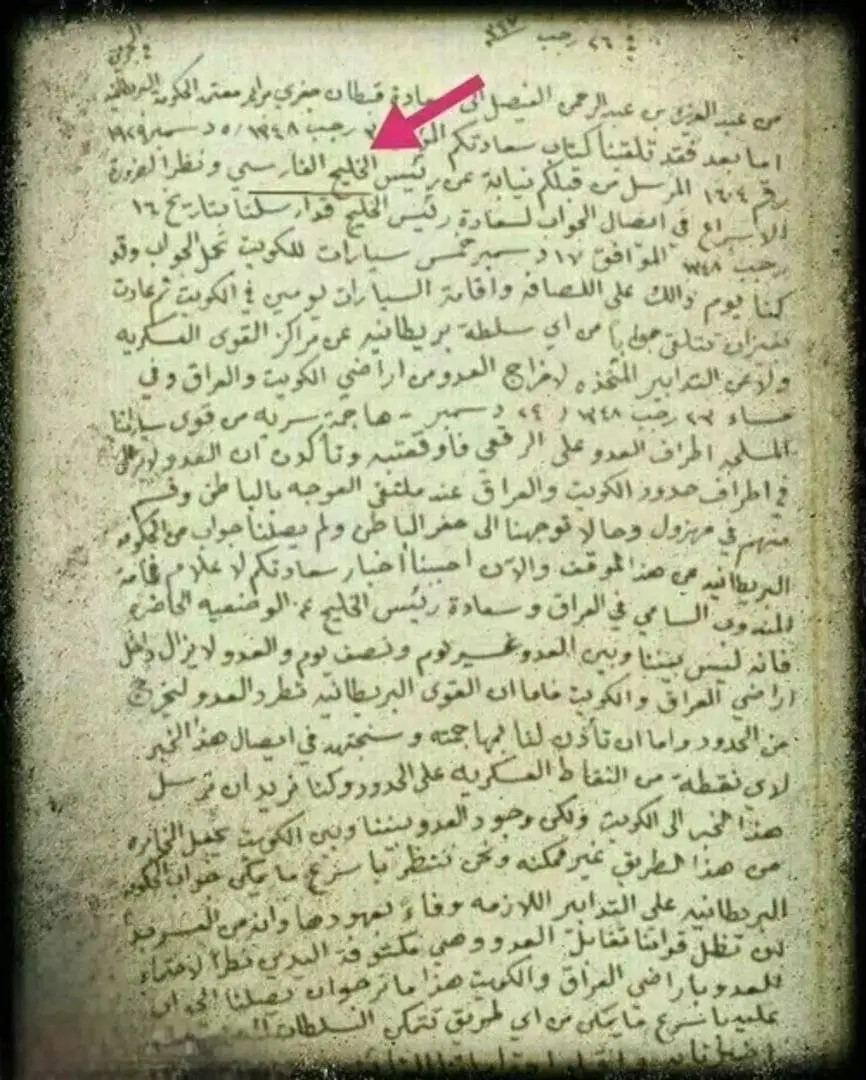 ٢٦ رجب
من عبد العزيز بن عبد الرحمن الفيصل الى سعادة قبطان جفري معتمد الحكومة البريطانيه
اما بعد فقد تلقينا كتاب سعادتكم رجب ١٣٤٨ / ٥ دسمبر ١٩٢٩
رقم ١٦٠٤ المرسل من قبلكم نيابة عن رئيس الخليج الفارسي ونظرا لضرورة
الاسراع في ايصال الجواب لسعادة رئيس الخليج قد ارسلنا بتاريخ ١٦
رجب ١٣٤٨ الموافق ١٧ دسمبر خمس سيارات للكويت تحمل الجواب وقد
كنا يوم ذالك على اللصافه واقامة السيارات يومين في الكويت ثم عادت
بغير ان نتلقى جوابا من اي سلطة بريطانيه عن مراكز القوى العسكريه
ولا عن التدابير المتخذه لاخراج العدو من اراضي الكويت والعراق وفي
مساء ٢٣ رجب ١٣٤٨ / ٢٤ دسمبر - هاجمة سريه من قوى سياراتنا
المسلحه اطراف العدو على الرقعي فاوقعت به وتأكدن ان العدو لايزال
في اطراف حدود الكويت والعراق عند ملتقى العوجه بالباطن وقسم
منهم في مهزول وحالا توجهنا الى حفر الباطن ولم يصلنا جواب من الحكومه
البريطانيه عن هذا الموقف والان احببنا اخبار سعادتكم لاعلام فخامة
المندوب السامي في العراق وسعادة رئيس الخليج عن الوضعيه الحاضره
فانه ليس بيننا وبين العدو غير يوم ونصف يوم والعدو لايزال داخل
اراضي العراق والكويت فاما ان القوى البريطانيه تطرد العدو ليخرج
من الحدود واما ان تأذن لنا بمهاجمته وسنجتهد في ايصال هذا الخبر
لاي نقطة من النقاط العسكريه على الحدود وكنا نريد ان نرسل
هذا الخبر الى الكويت ولكن وجود العدو بيننا وبين الكويت يجعل المخابره
من هذا الطريق غير ممكنه ونحن ننتظر باسرع ما يمكن جواب الحكومه
البريطانيه على التدابير اللازمه وفاء بعهودها وانه من
ان تظل قواتنا تقابل العدو وهي مكتوفة اليدين نظرا لاحتماء
العدو باراضي العراق والكويت هذا ما نرجو ان يصلنا الجواب
عليه باسرع ما يمكن من اي طريق تتمكن السلطات